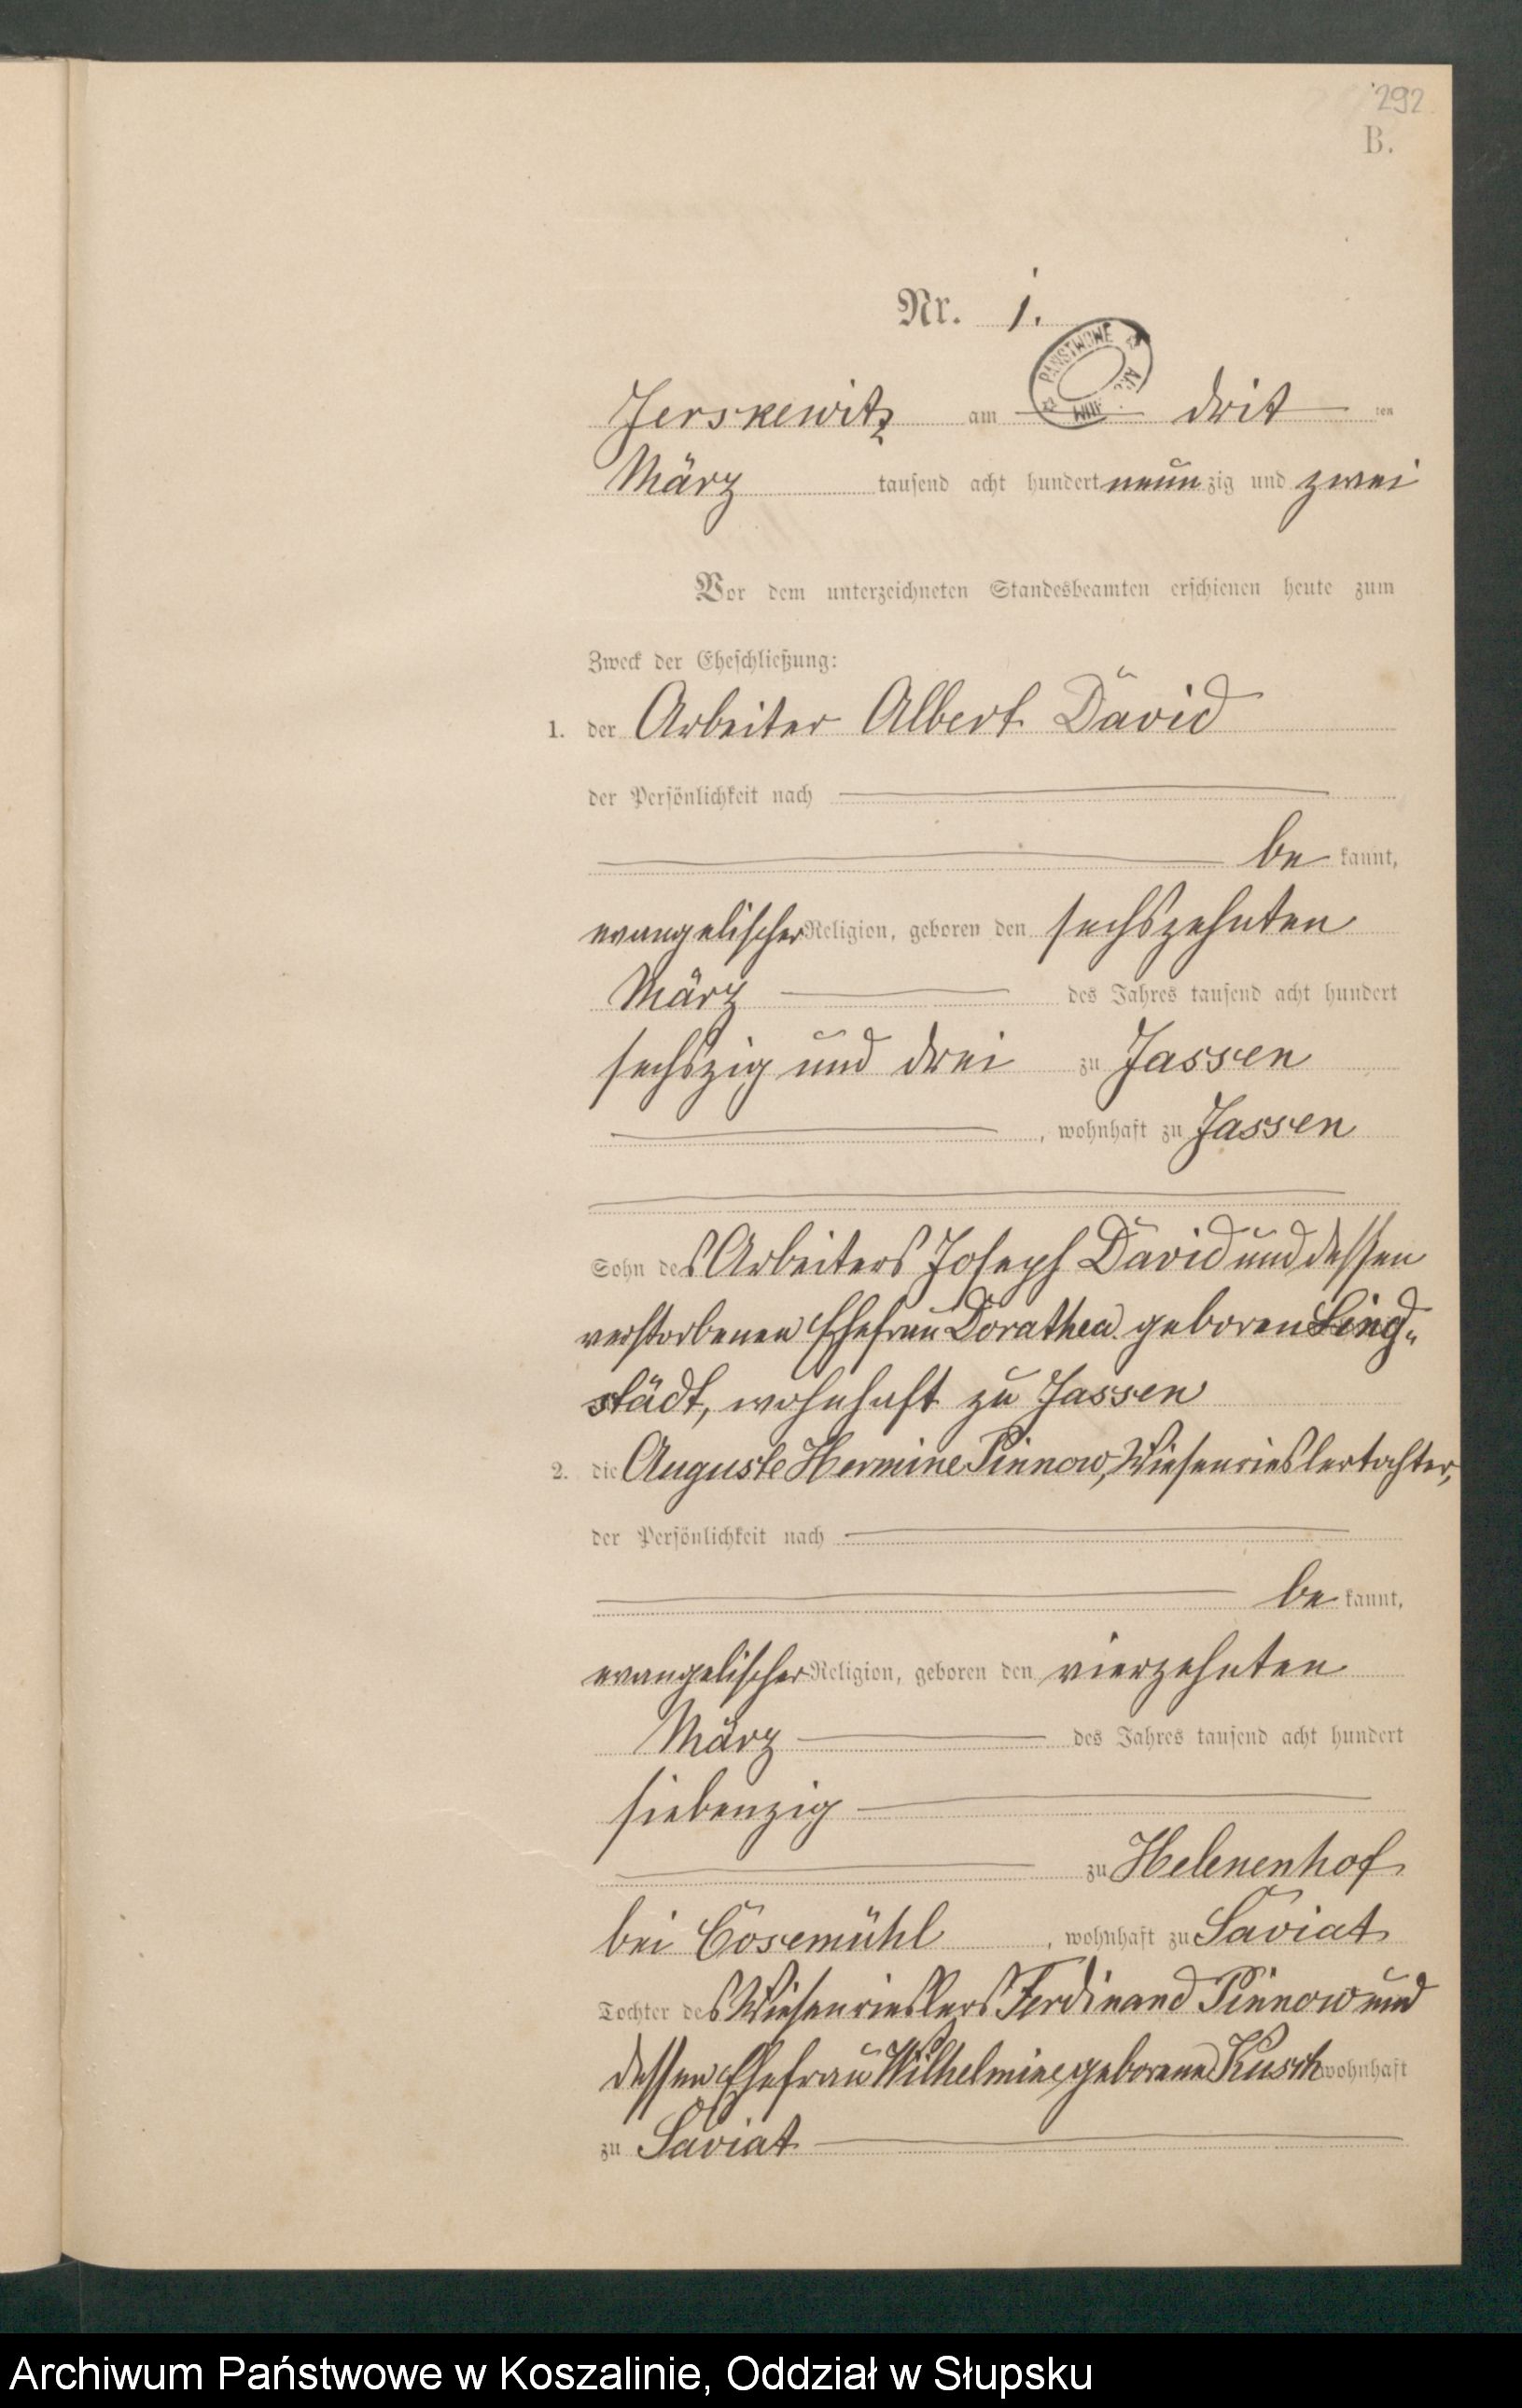 292
B.
Nr. 1.
PAŃSTWOWE
Jerskewitz am drit ten
März tausend acht hundert neun zig und zwei
Vor dem unterzeichneten Standesbeamten erschienen heute zum
Zweck der Eheschließung:
1. der Arbeiter Albert David
der Persönlichkeit nach
be kannt,
evangelischer Religion, geboren den sechszehnten
März des Jahres tausend acht hundert
sechszig und drei zu Jassen
, wohnhaft zu Jassen
Sohn des Arbeiters Joseph David und dessen
verstorbenen Ehefrau Dorathea geboren Lind„
städt, wohnhaft zu Jassen
2. die Auguste Hermine Pinnow, Wiesenrieslertochter,
der Persönlichkeit nach
be kannt,
evangelischer Religion, geboren den vierzehnten
März des Jahres tausend acht hundert
siebenzig
zu Helenenhof
bei Cosemühl , wohnhaft zu Saviat
Tochter des Wiesenrieslers Ferdinand Pinnow und
dessen Ehefrau Wilhelmine, geborene Kusch wohnhaft
zu Saviat
Archiwum Państwowe w Koszalinie, Oddział w Słupsku